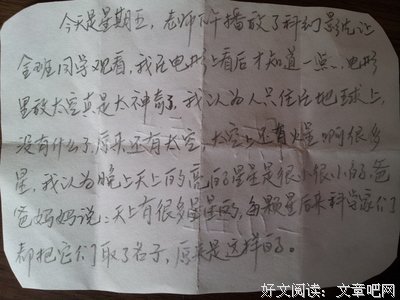 今天是星期五，老师下午播放了科幻影片让
全班同学观看，我在电影上看后才知道一点，电影
里放太空真是太神奇了，我认为人只住在地球上，
没有什么了原来还有太空，太空上还有火星啊很多
星，我认为晚上天上的亮的星星是很小很小的，爸
爸妈妈说：天上有很多星星的，每颗星后来科学家们
都把它们取了名子，原来是这样的。
好文阅读：文章吧网